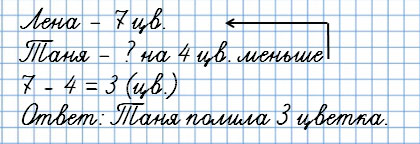 Лена – 7 цв.
Таня – ? на 4 цв. меньше
7 - 4 = 3 (цв.)
Ответ: Таня полила 3 цветка.